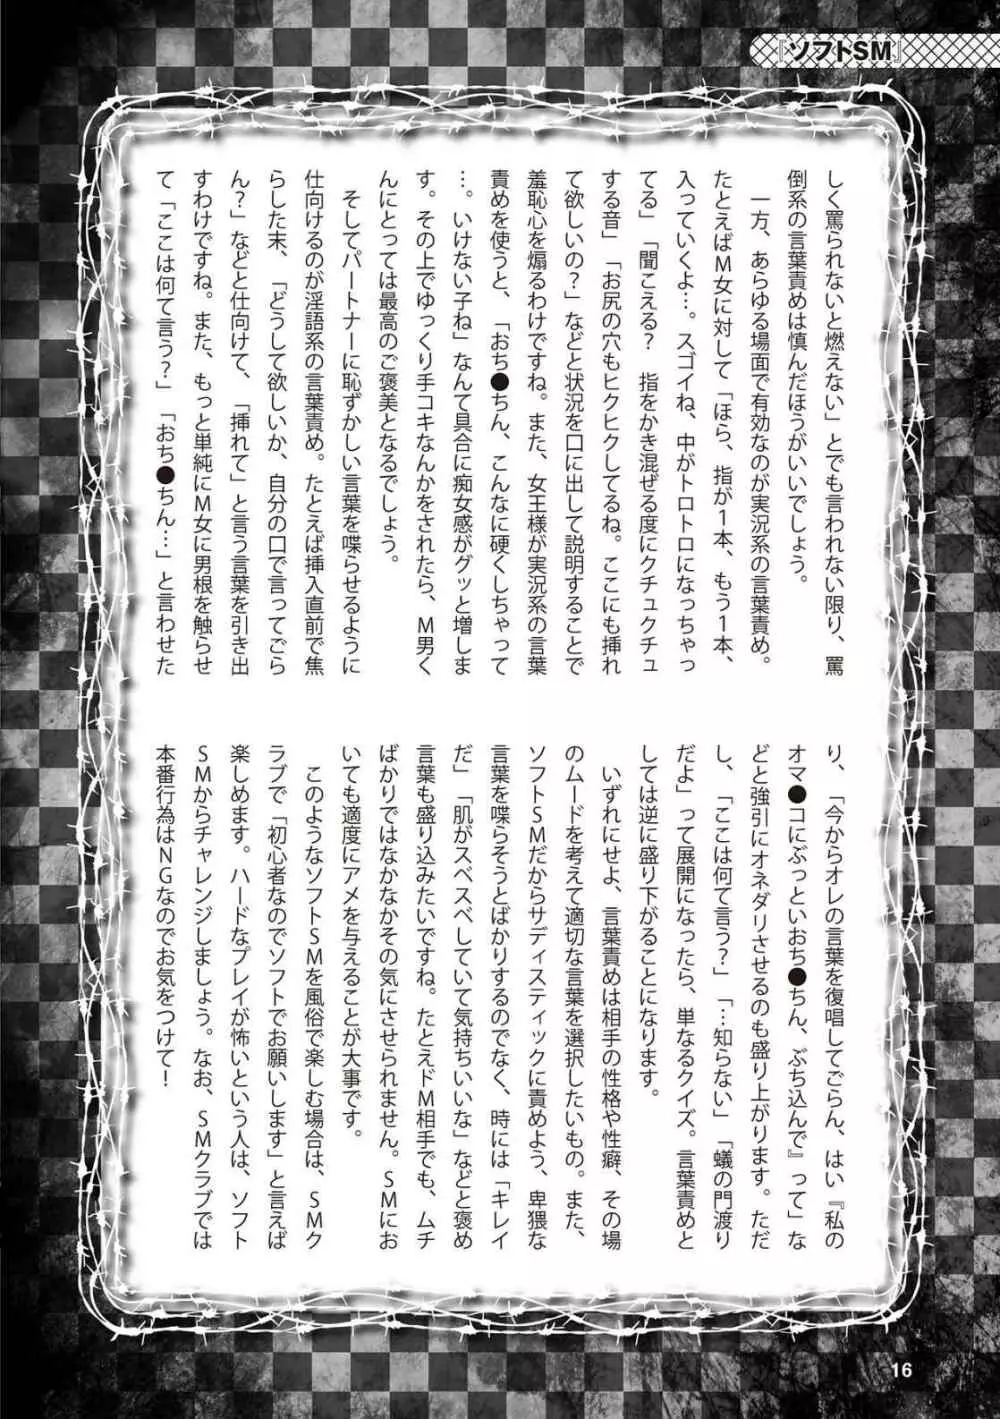 『ソフトSM』
しく罵られないと燃えない」とでも言われない限り、罵
倒系の言葉責めは慎んだほうがいいでしょう。
一方、あらゆる場面で有効なのが実況系の言葉責め。
たとえばM女に対して「ほら、指が1本、もう1本、
入っていくよ…。スゴイね、中がトロトロになっちゃっ
てる」「聞こえる？　指をかき混ぜる度にクチュクチュ
する音」「お尻の穴もヒクヒクしてるね。ここにも挿れ
て欲しいの？」などと状況を口に出して説明することで
羞恥心を煽るわけですね。また、女王様が実況系の言葉
責めを使うと、「おち●ちん、こんなに硬くしちゃって
…。いけない子ね」なんて具合に痴女感がグッと増しま
す。その上でゆっくり手コキなんかをされたら、M男く
んにとっては最高のご褒美となるでしょう。
そしてパートナーに恥ずかしい言葉を喋らせるように
仕向けるのが淫語系の言葉責め。たとえば挿入直前で焦
らした末、「どうして欲しいか、自分の口で言ってごら
ん？」などと仕向けて、「挿れて」と言う言葉を引き出
すわけですね。また、もっと単純にM女に男根を触らせ
て「ここは何て言う？」「おち●ちん…」と言わせた
り、「今からオレの言葉を復唱してごらん、はい『私の
オマ●コにぶっといおち●ちん、ぶち込んで』って」な
どと強引にオネダリさせるのも盛り上がります。ただ
し、「ここは何て言う？」「…知らない」「蟻の門渡り
だよ」って展開になったら、単なるクイズ。言葉責めと
しては逆に盛り下がることになります。
いずれにせよ、言葉責めは相手の性格や性癖、その場
のムードを考えて適切な言葉を選択したいもの。また、
ソフトSMだからサディスティックに責めよう、卑猥な
言葉を喋らそうとばかりするのでなく、時には「キレイ
だ」「肌がスベスベしていて気持ちいいな」などと褒め
言葉も盛り込みたいですね。たとえドM相手でも、ムチ
ばかりではなかなかその気にさせられません。SMにお
いても適度にアメを与えることが大事です。
このようなソフトSMを風俗で楽しむ場合は、SMク
ラブで「初心者なのでソフトでお願いします」と言えば
楽しめます。ハードなプレイが怖いという人は、ソフト
SMからチャレンジしましょう。なお、SMクラブでは
本番行為はNGなのでお気をつけて！
16